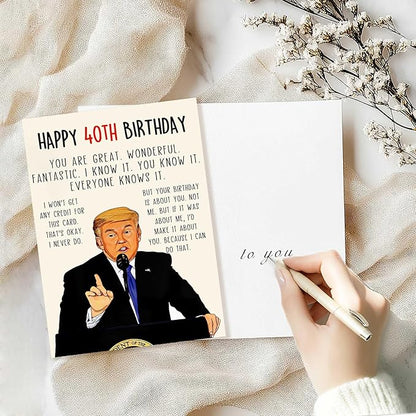 HAPPY 40TH BIRTHDAY
YOU ARE GREAT. WONDERFUL.
FANTASTIC. I KNOW IT. YOU KNOW IT.
EVERYONE KNOWS IT.
I WON'T GET
ANY CREDIT FOR
THIS CARD.
THAT'S OKAY.
I NEVER DO.
BUT YOUR BIRTHDAY
IS ABOUT YOU. NOT
ME. BUT IF IT WAS
ABOUT ME, I'D
MAKE IT ABOUT
YOU. BECAUSE I CAN
DO THAT.
to you
ENT OF